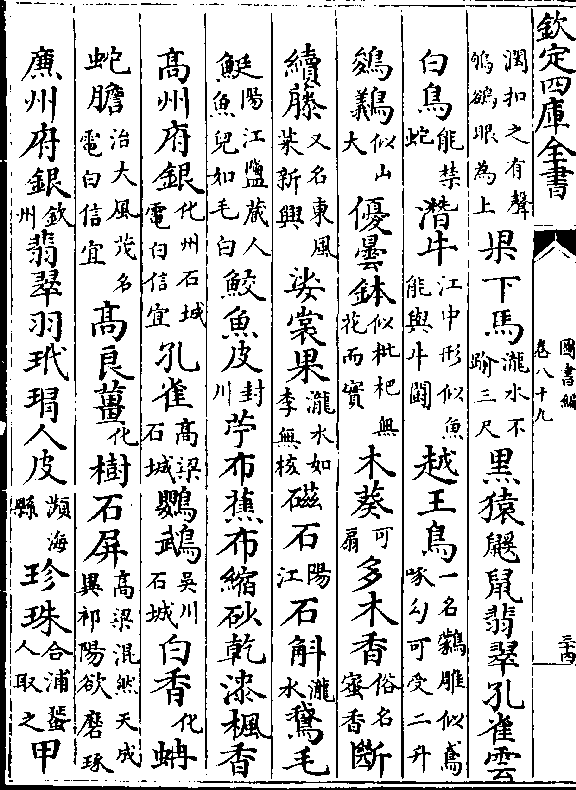 欽定四庫全書
圖書編
卷八十九
三十四
潤扣之有聲鴝鵒眼為上果下馬瀧水不踰三尺黒猿鼯鼠翡翠孔雀雲
白鳥能禁蛇潛牛江中形似魚能與牛鬬越王鳥一名鶴雕似鳶啄勾可受二升
鵕鸃似山大優曇鉢似枇杷無花而實木葵可扇多木香俗名蜜香斷
續藤又名東風菜新興娑裳果瀧水如李無核磁石陽江石斛瀧水鵞毛
鯅陽江鹽藏人魚兒如毛白鮫魚皮封川苧布蕉布縮砂乾漆楓香
髙州府銀化州石城電白信宜孔雀髙梁石城鸚鵡吳川石城白香化蚺
蛇膽治大風茂名電白信宜髙良薑化樹石屏髙梁混然天成異祁陽欲磨琢
廉州府銀欽州翡翠羽玳瑁人皮瀕海縣珍珠合浦蜑人取之甲